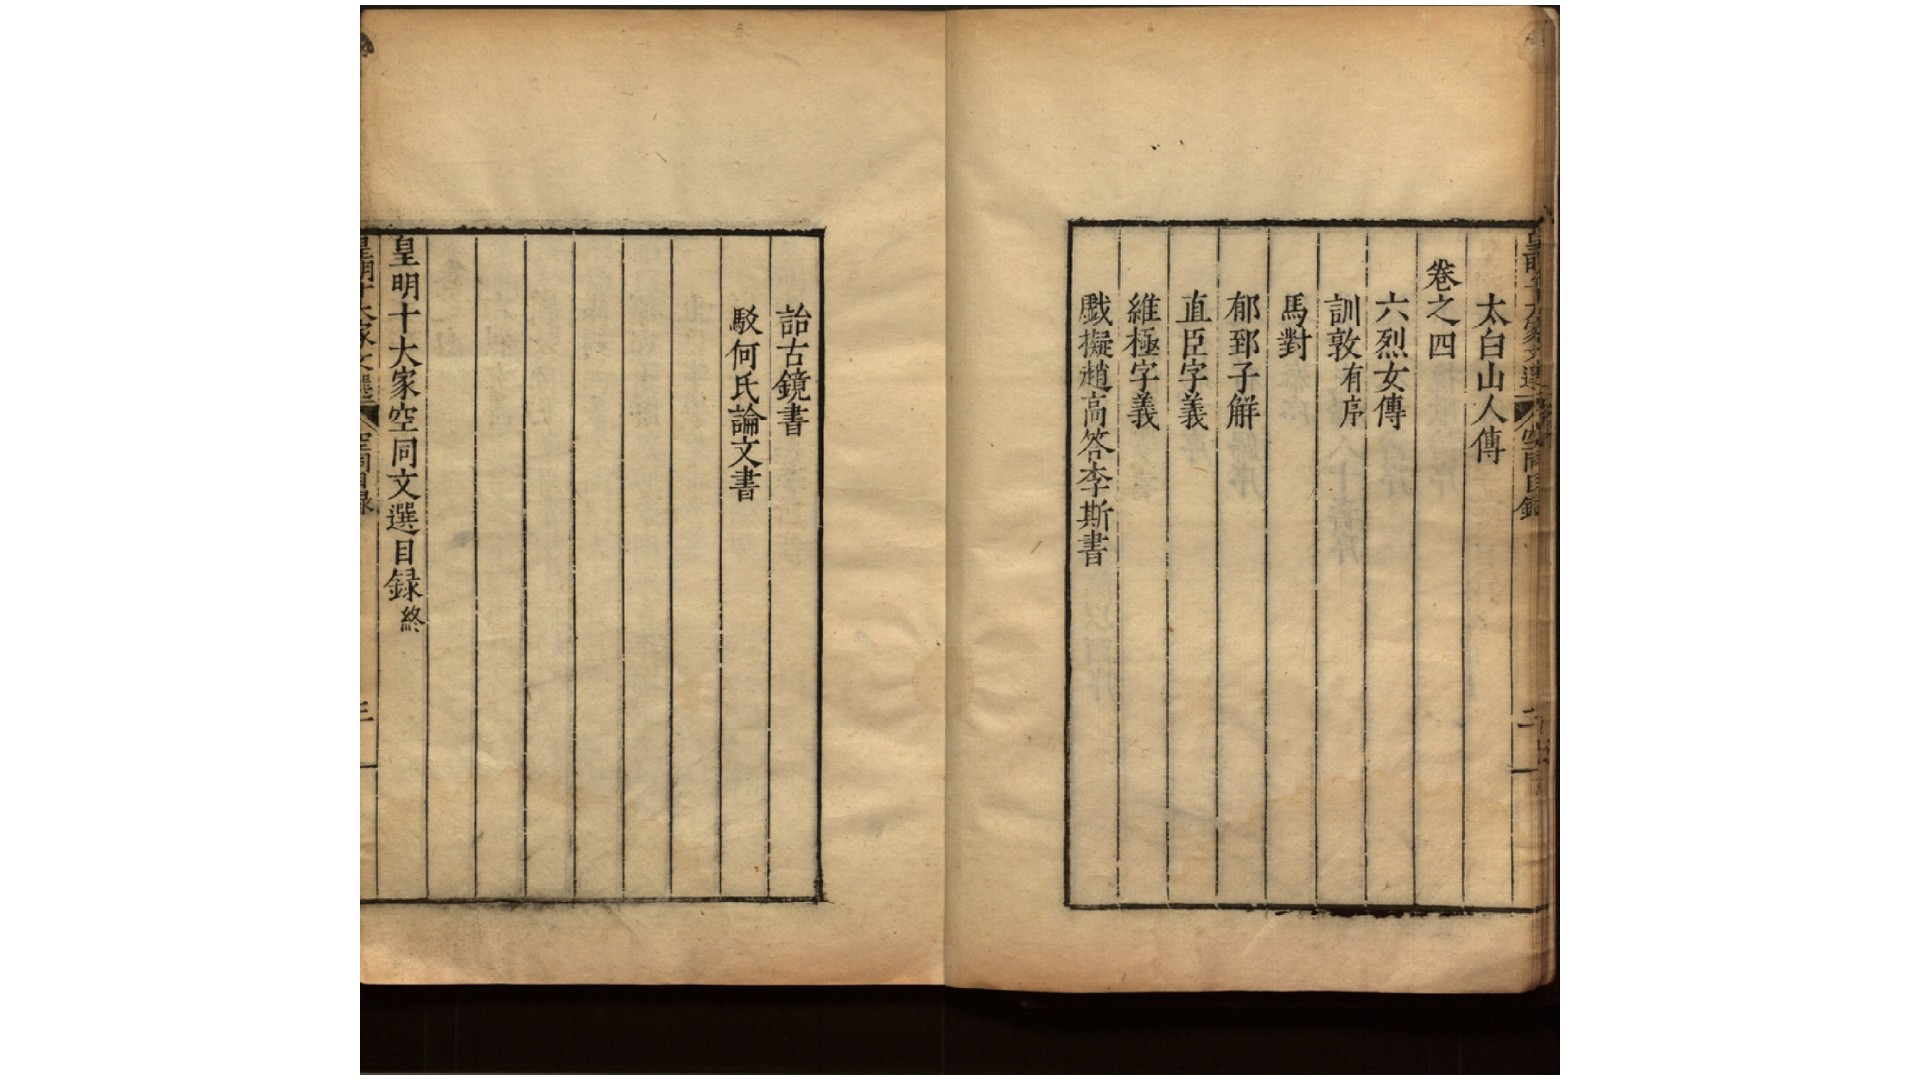 皇明十大家文選 空同目錄 二
太白山人傳
卷之四
六烈女傳
訓敦有序
馬對
郁郅子解
直臣字義
維極字義
戲擬趙高答李斯書
詒古鏡書
駁何氏論文書
皇明十大家空同文選目録終
皇明十大家文選 空同目録 三